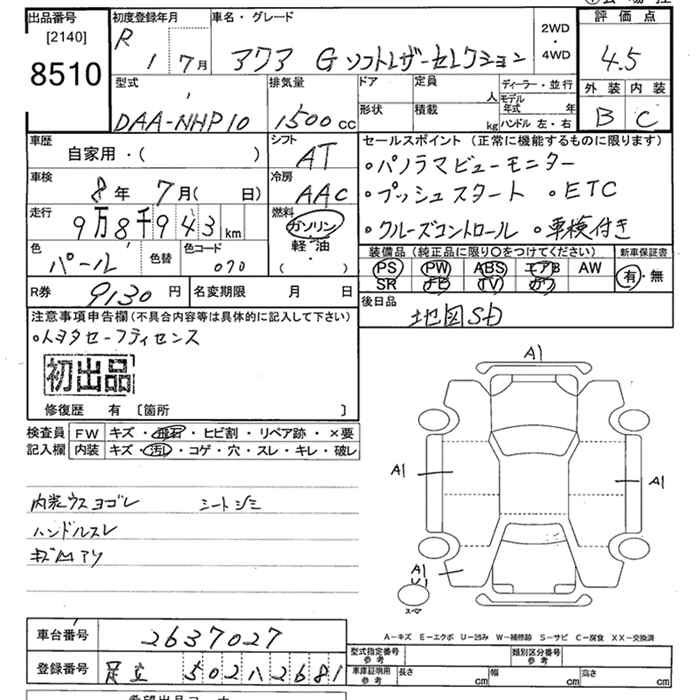 出品番号 [2140] 8510
初度登録年月 R 1 7月
車名・グレード アクア G ソフトレザーセレクション
2WD・4WD
評価点 4.5
外装 B 内装 C
型式 DAA-NHP10
排気量 1500cc
ドア 形状
定員 人
積載 kg
ディーラー・並行
モデル年式 年
ハンドル 左・右
車歴 自家用・( )
シフト AT
セールスポイント (正常に機能するものに限ります)
・パノラマビューモニター
・プッシュスタート ・ETC
・クルーズコントロール ・車検付き
車検 8年 7月( 日)
冷房 AAC
走行 9万8千943km
燃料 ガソリン 軽・油 ( ・ )
色 パール 色替 色コード 070
装備品 (純正品に限り○をつけてください)
PS PW ABS エアB AW
SR ナビ TV カワ
新車保証書 有・無
R券 9130円 名変期限 月 日
後日品 地図SD
注意事項申告欄 (不具合内容等は具体的に記入して下さい)
・トヨタセーフティセンス
初出品
修復歴 有 [箇所 ]
検査員記入欄
FW キズ・飛石・ヒビ割・リペア跡・×要
内装 キズ・汚れ・コゲ・穴・スレ・キレ・破レ
内装ウスヨゴレ シートシミ
ハンドルスレ
A1
A1
A1
A1
スペア
A-キズ E-エクボ U-凹み W-補修跡 S-サビ C-腐食 XX-交換済
車台番号 2637027
登録番号 足立 502 ハ 2681
型式指定番号 参考
類別区分番号 参考
車庫証明用 参考 長さ cm 幅 cm 高さ cm